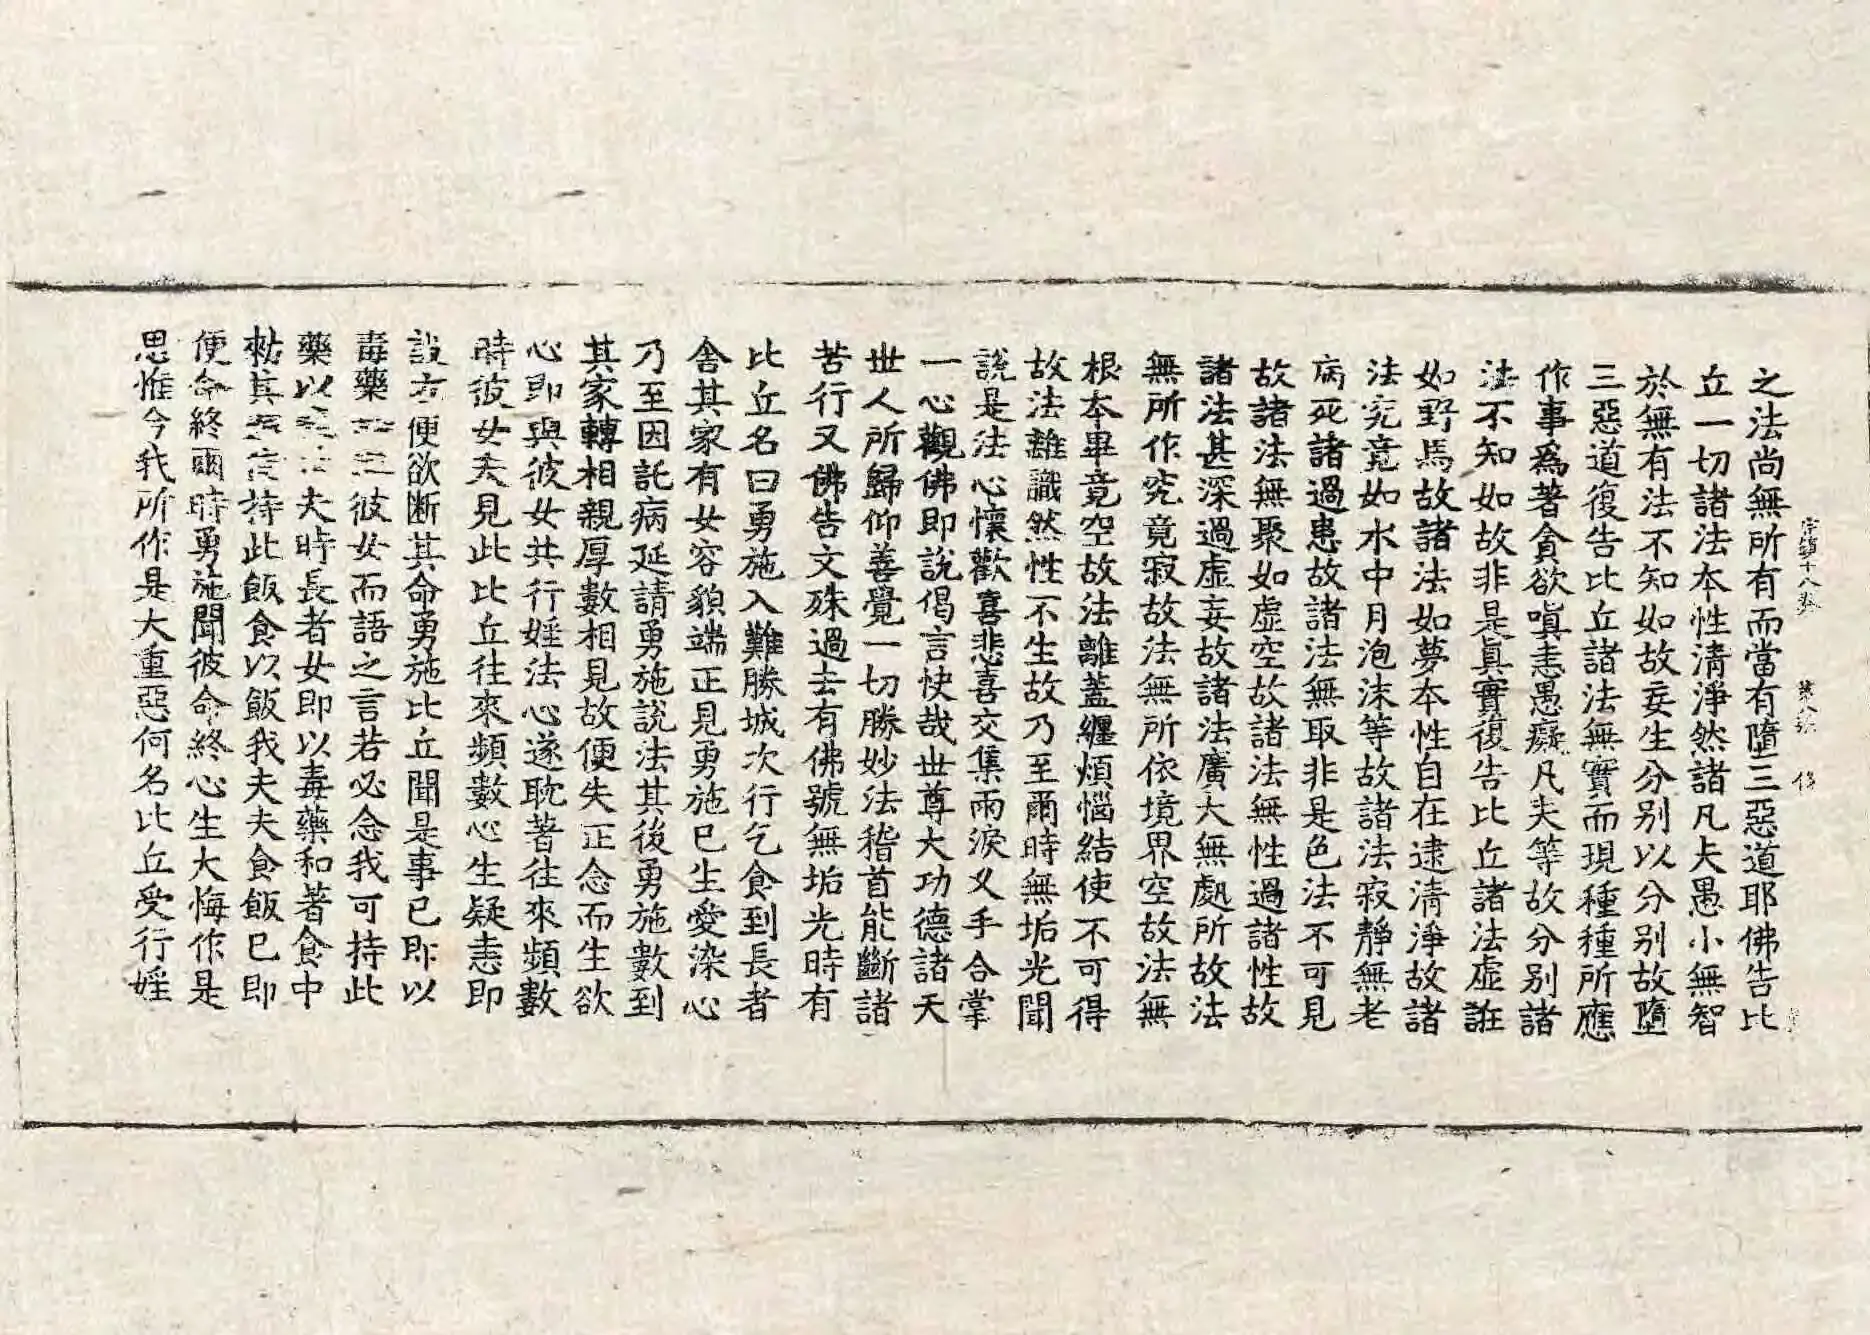 之法尚無所有而當有墮三惡道耶佛告比
丘一切諸法本性清淨然諸凡夫愚小無智
於無有法不知如故妄生分别以分别故墮
三惡道復告比丘諸法無實而現種種所應
作事為著貪欲嗔恚愚癡凡夫等故分别諸
法不知如故非是真實復告比丘諸法虛誑
如野馬故諸法如夢本性自在逮清淨故諸
法究竟如水中月泡沫等故諸法寂靜無老
病死諸過患故諸法無取非是色法不可見
故諸法無聚如虛空故諸法無性過諸性故
諸法甚深過虛妄故諸法廣大無處所故法
無所作究竟寂故法無所依境界空故法無
根本畢竟空故法離蓋纏煩惱結使不可得
故法離識然性不生故乃至爾時無垢光聞
說是法心懷歡喜悲喜交集雨淚叉手合掌
一心觀佛即說偈言快哉世尊大功德諸天
世人所歸仰善覺一切勝妙法稽首能斷諸
苦行又佛告文殊過去有佛號無垢光時有
比丘名曰勇施入難勝城次行乞食到長者
舍其家有女容貌端正見勇施已生愛染心
乃至因託病延請勇施說法其後勇施數到
其家轉相親厚數相見故便失正念而生欲
心即與彼女共行婬法心遂耽著往來頻數
時彼女夫見此比丘往來頻數心生疑恚即
設方便欲断其命勇施比丘聞是事已即以
毒藥彼女而語之言若必念我可持此
藥以夫時長者女即以毒藥和著食中
勑其持此飯食以飯我夫夫食飯已即
便命終爾時勇施聞彼命終心生大悔作是
思惟今我所作是大重惡何名比丘受行婬